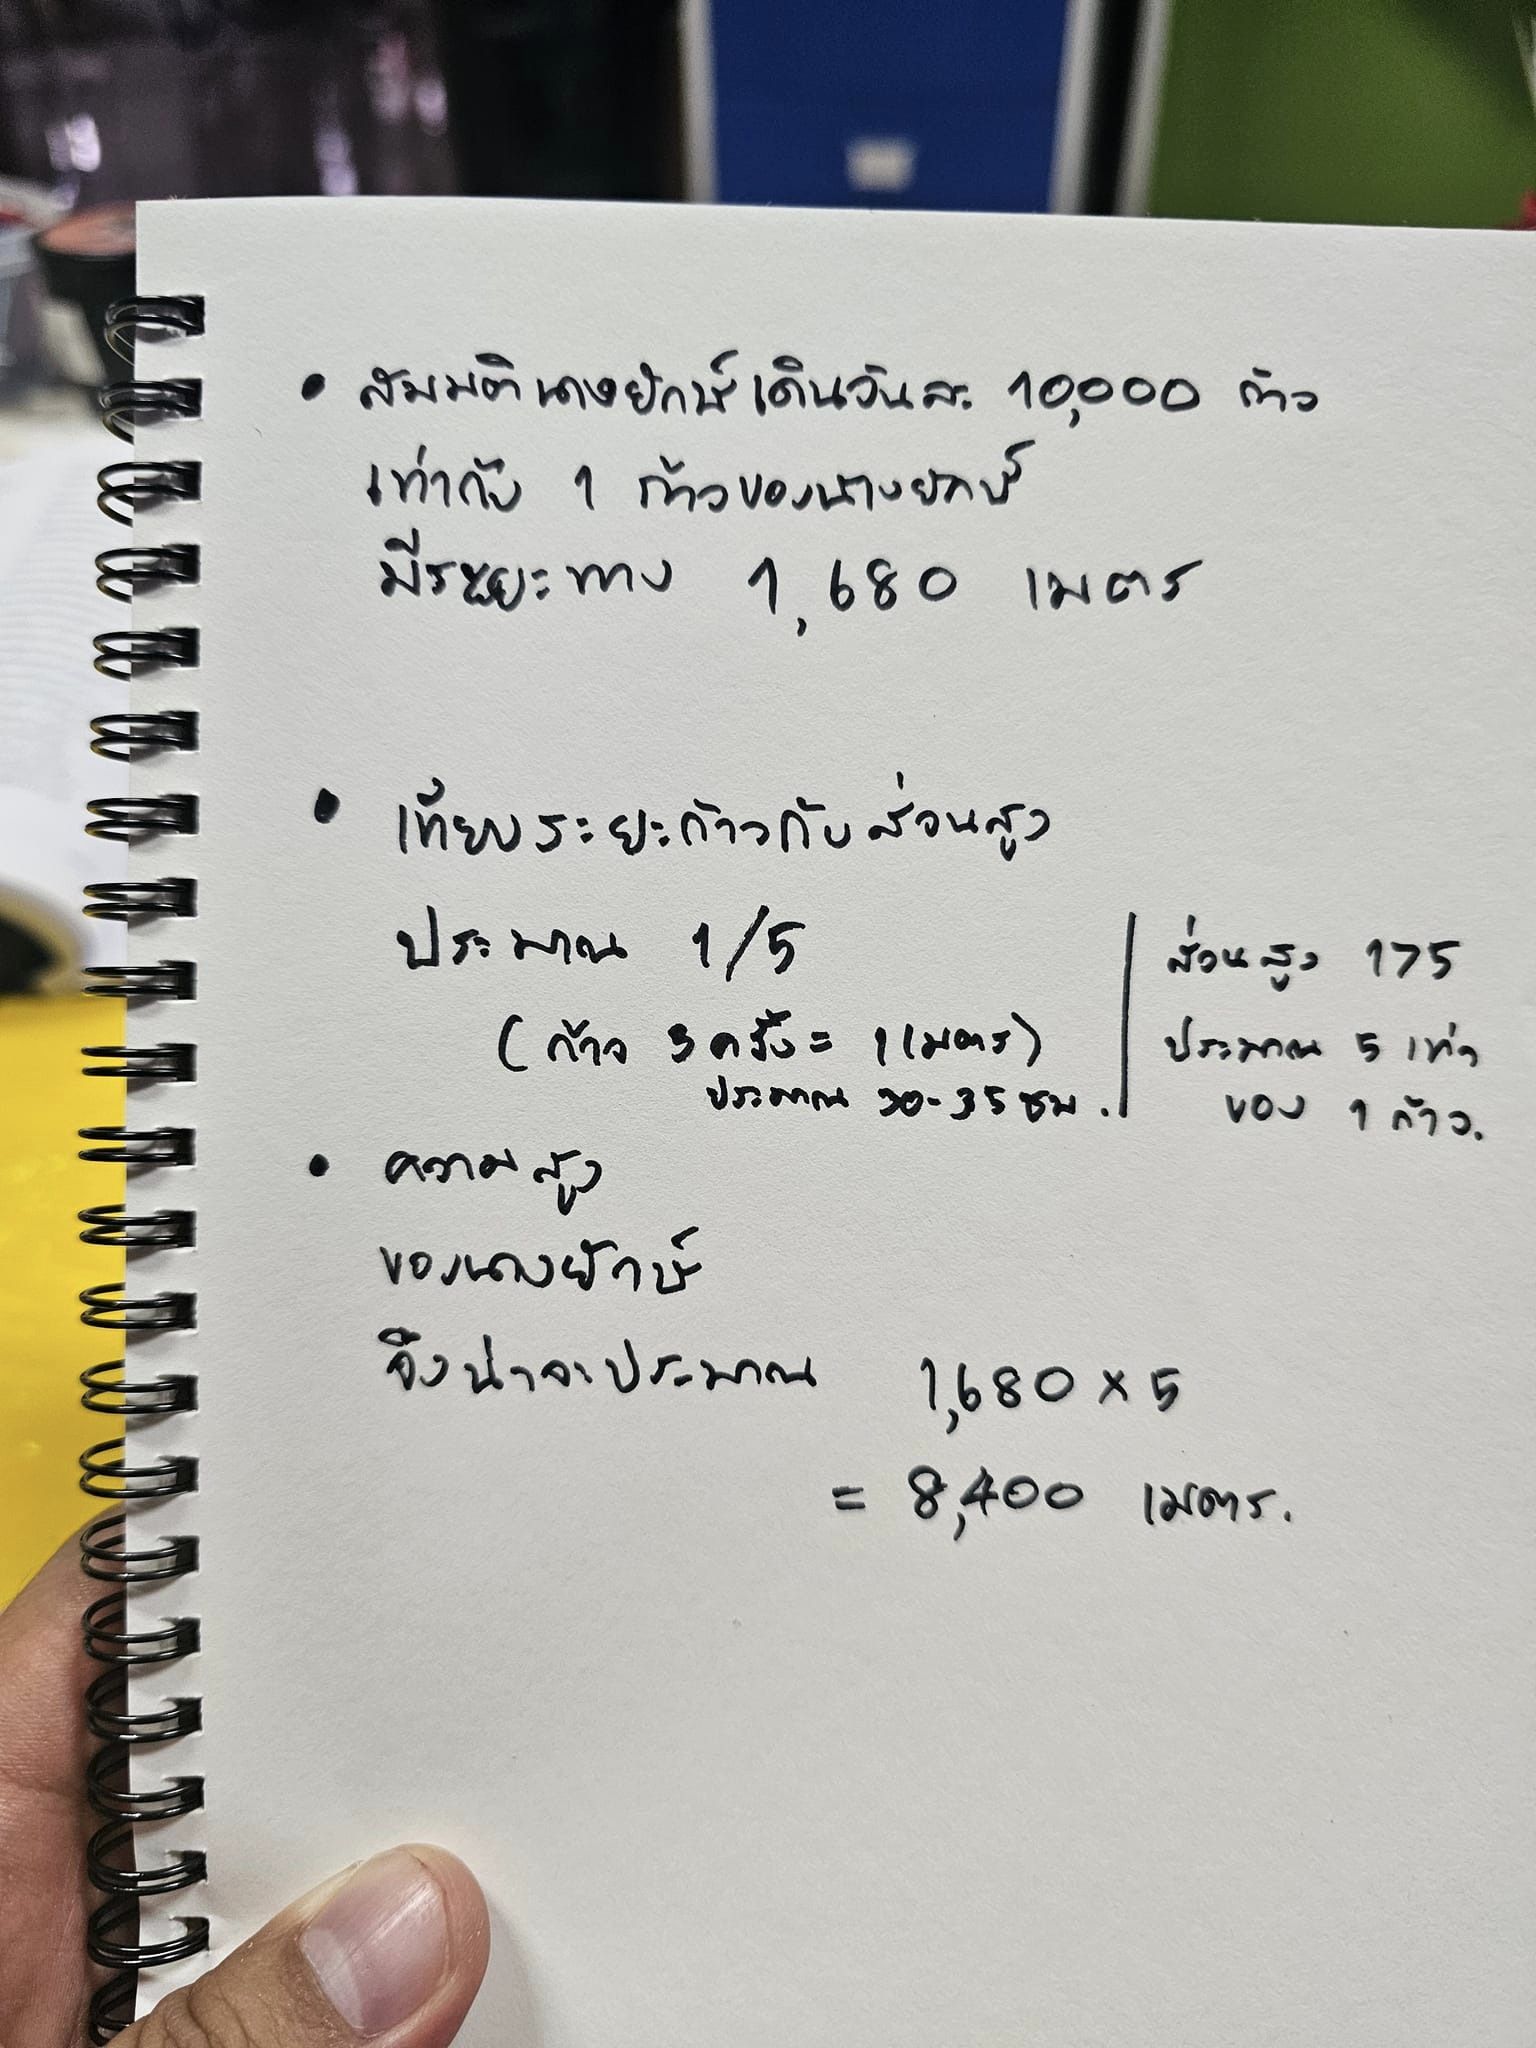 • สมมตินางยักษ์เดินวันละ 10,000 ก้าว
เท่ากับ 1 ก้าวของนางยักษ์
มีระยะทาง 1,680 เมตร
• เทียบระยะก้าวกับส่วนสูง
ประมาณ 1/5
(ก้าว 3 ครั้ง = 1 เมตร)
ประมาณ 30-35 ซม.
ส่วนสูง 175
ประมาณ 5 เท่า
ของ 1 ก้าว.
• ความสูง
ของนางยักษ์
จึงน่าจะประมาณ 1,680 × 5
= 8,400 เมตร.